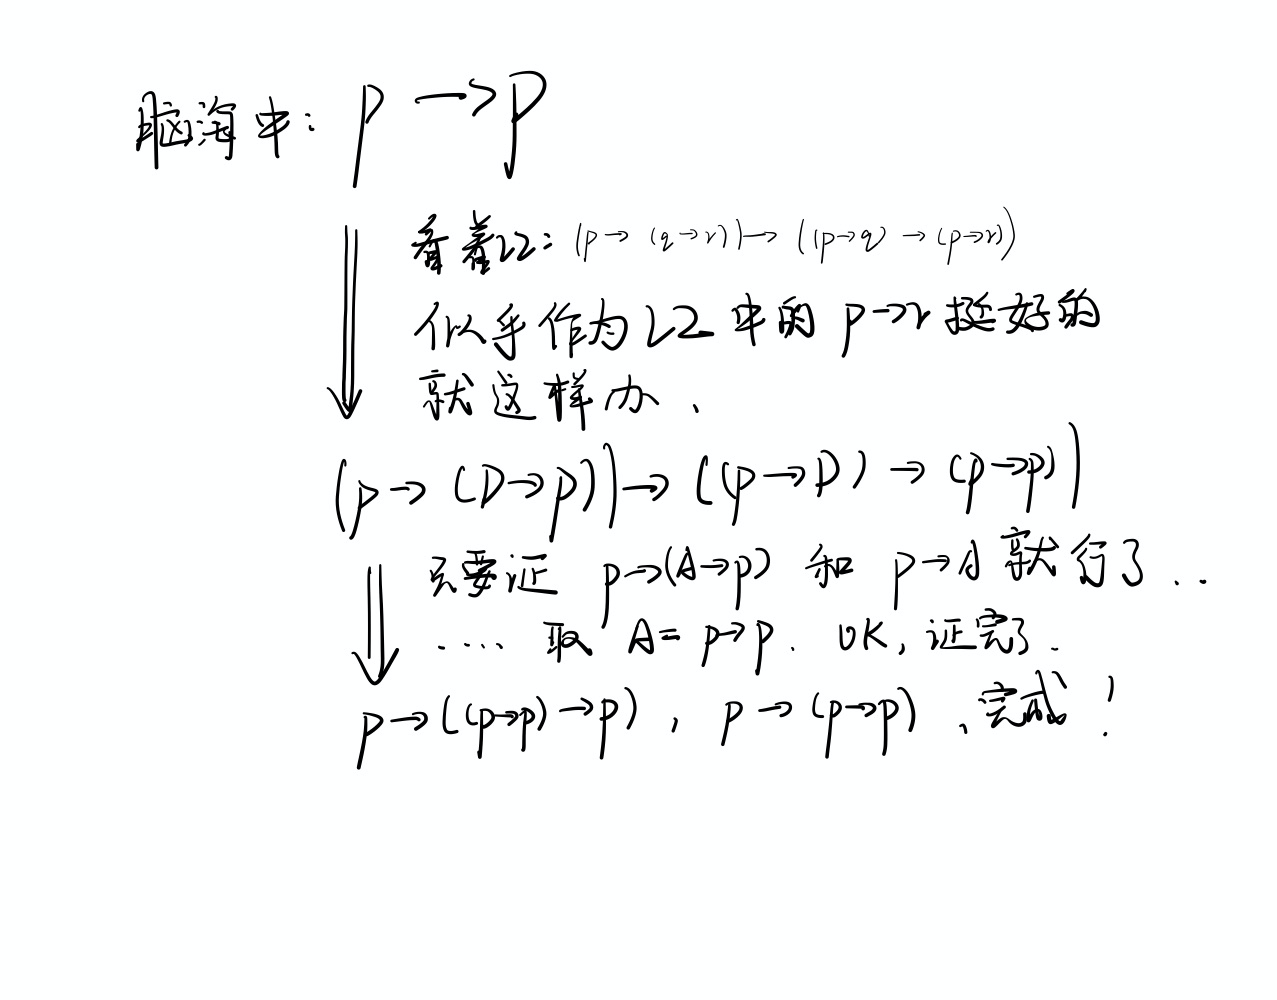 脑海中: p → p
看着L2: (p → (q → r)) → ((p → q) → (p → r))
似乎作为L2中的 p → r 挺好的
就这样办、
(p → (p → p)) → ((p → p) → (p → p))
只要证 p → (A → p) 和 p → A 就行了 ..
..... 取 A = p → p. OK, 证完了.
p → ((p → p) → p), p → (p → p) 、完成!